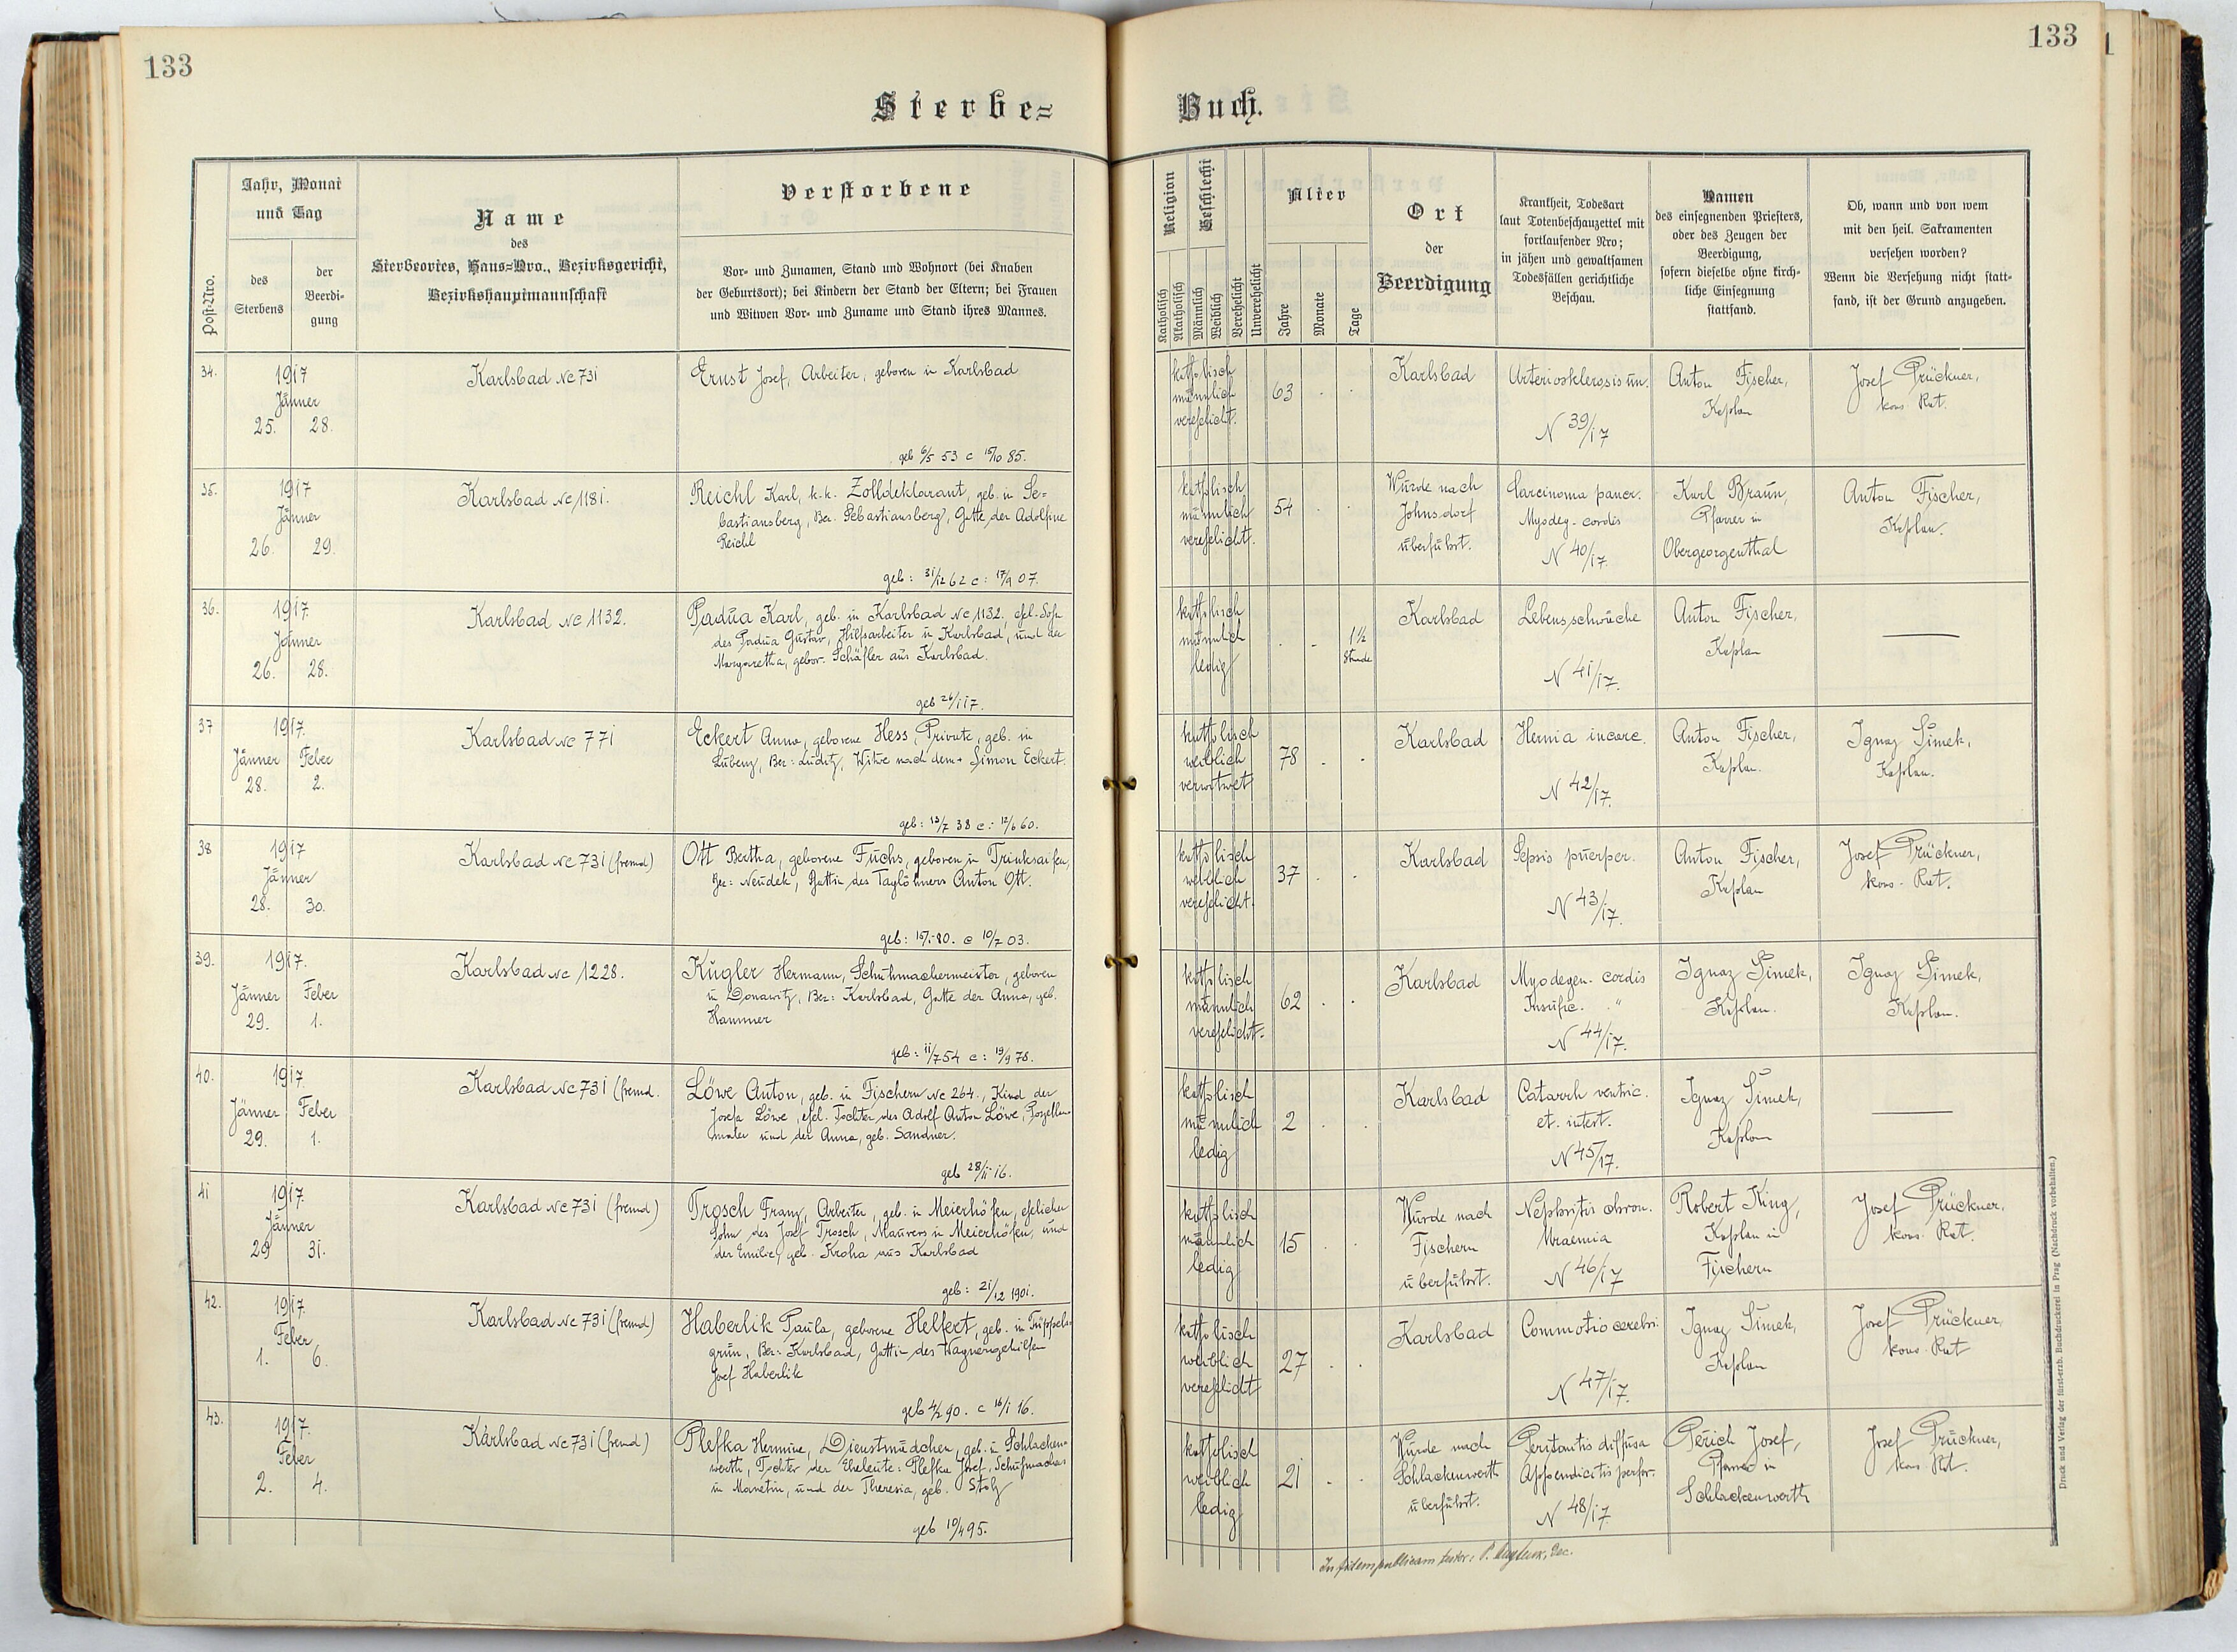 133
133
Sterbe=
Buch.
Post-Nro.
Jahr, Monat
und Tag
des
Sterbens
der
Beerdi-
gung
Name
des
Sterbeortes, Haus=Nro., Bezirksgericht,
Bezirkshauptmannschaft
Verstorbene
Vor- und Zunamen, Stand und Wohnort (bei Knaben
der Geburtsort); bei Kindern der Stand der Eltern; bei Frauen
und Witwen Vor- und Zuname und Stand ihres Mannes.
Religion
Katholisch
Akatholisch
Geschlecht
Männlich
Weiblich
Verehelicht
Unverehelicht
Alter
Jahre
Monate
Tage
Ort
der
Beerdigung
Krankheit, Todesart
laut Totenbeschauzettel mit
fortlaufender Nro;
in jähen und gewaltsamen
Todesfällen gerichtliche
Beschau.
Namen
des einsegnenden Priesters,
oder des Zeugen der
Beerdigung,
sofern dieselbe ohne kirch-
liche Einsegnung
stattfand.
Ob, wann und von wem
mit den heil. Sakramenten
versehen worden?
Wenn die Versehung nicht statt-
fand, ist der Grund anzugeben.
34.
1917
Jänner
25. 28.
Karlsbad Nc 731
Ernst Josef, Arbeiter, geboren in Karlsbad
geb 6/5 53 c 15/10 85.
katholisch
männlich
verehelicht.
63
Karlsbad
Arteriosklerosis un.
N 39/17
Anton Fischer,
Kaplan
Josef Prückner,
kons. Rat.
35.
1917
Jänner
26. 29.
Karlsbad Nc 1181.
Reichl Karl, k.k. Zolldeklarant, geb. in Se=
bastiansberg, Bez. Sebastiansberg, Gatte der Adolfine
Reichl
geb: 31/12 62 c: 17/9 07.
katholisch
männlich
verehelicht.
54
Wurde nach
Johnsdorf
überführt.
Carcinoma pancr.
Myodeg. cordis
N 40/17.
Karl Braun,
Pfarrer in
Obergeorgenthal
Anton Fischer,
Kaplan.
36.
1917
Jänner
26. 28.
Karlsbad Nc 1132.
Padua Karl, geb. in Karlsbad Nc 1132. ehl. Sohn
des Padua Gustav, Hilfsarbeiter in Karlsbad, und der
Margaretha, gebor. Schäfler aus Karlsbad.
geb 26/1 17.
katholisch
männlich
ledig
1½
Stunde
Karlsbad
Lebensschwäche
N 41/17.
Anton Fischer,
Kaplan
37
1917.
Jänner Feber
28. 2.
Karlsbad Nc 771
Eckert Anna, geborene Hess, Private, geb. in
Lubenz, Bez: Luditz, Witwe nach dem + Simon Eckert.
geb: 13/7 38 c: 12/6 60.
katholisch
weiblich
verwitwet
78
Karlsbad
Hernia incarc.
N 42/17.
Anton Fischer,
Kaplan.
Ignaz Šimek,
Kaplan.
38
1917
Jänner
28. 30.
Karlsbad Nc 731 (fremd)
Ott Bertha, geborene Fuchs, geboren in Trinksaifen,
Bez: Neudek, Gattin des Taglöhners Anton Ott.
geb: 15/1 80. c 10/7 03.
katholisch
weiblich
verehelicht.
37
Karlsbad
Sepsis puerper.
N 43/17.
Anton Fischer,
Kaplan
Josef Prückner,
kons. Rat.
39.
1917.
Jänner Feber
29. 1.
Karlsbad Nc 1228.
Kugler Hermann, Schuhmachermeister, geboren
in Donawitz, Bez: Karlsbad, Gatte der Anna, geb.
Hammer
geb: 11/7 54 c: 19/9 78.
katholisch
männlich
verehelicht.
62
Karlsbad
Myodegen. cordis
Insufic. "
N 44/17.
Ignaz Šimek,
Kaplan.
Ignaz Šimek,
Kaplan.
40.
1917
Jänner Feber
29. 1.
Karlsbad Nc 731 (fremd.
Löwe Anton, geb. in Fischern Nc 264., Kind der
Josefa Löwe, ehel. Tochter des Adolf Anton Löwe, Porzellan
maler und der Anna, geb. Sandner.
geb 28/11 16.
katholisch
männlich
ledig
2
Karlsbad
Catarrh ventric.
et. intest.
N 45/17.
Ignaz Šimek,
Kaplan
41
1917
Jänner
29 31.
Karlsbad Nc 731 (fremd)
Trosch Franz, Arbeiter, geb. in Meierhöfen, ehelicher
Sohn des Josef Trosch, Maurers in Meierhöfen, und
der Emilie, geb. Kroha aus Karlsbad
geb: 21/12 1901.
katholisch
männlich
ledig
15
Wurde nach
Fischern
überführt.
Nephritis chron.
Uraemia
N 46/17
Robert King,
Kaplan in
Fischern
Josef Prückner,
kons. Rat.
42.
1917.
Feber
1. 6.
Karlsbad Nc 731 (fremd)
Haberlik Paula, geborene Helfert, geb. in Trippels-
grün, Bez: Karlsbad, Gattin des Wagnergehilfen
Josef Haberlik
geb 4/2 90. c 16/1 16.
katholisch
weiblich
verehelicht
27
Karlsbad
Commotio cerebri
N 47/17.
Ignaz Šimek,
Kaplan
Josef Prückner,
kons. Rat
43.
1917.
Feber
2. 4.
Karlsbad Nc 731 (fremd)
Plefka Hermine, Dienstmädchen, geb. in Schlacken-
werth, Tochter der Eheleute: Plefka Josef, Schuhmachers
in Manetin, und der Theresia, geb. Stolz
geb 10/4 95.
katholisch
weiblich
ledig
21
Wurde nach
Schlackenwerth
überführt.
Peritonitis diffusa
Appendicitis perfor.
N 48/17.
Perich Josef,
Pfarrer in
Schlackenwerth
Josef Prückner,
kons. Rat.
In fidem publicam
Druck und Verlag der fürst-erzb. Buchdruckerei in Prag (Nachdruck vorbehalten.)